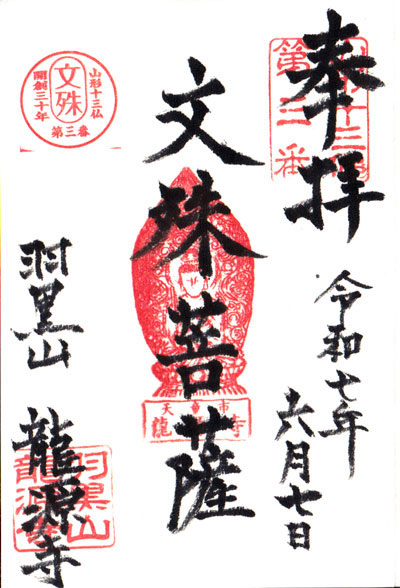 奉拝
山形十三仏
第三番
令和七年
六月七日
文殊菩薩
天童市
龍源寺
山形十三仏
文殊
開創三十年
第三番
羽黒山
龍源寺
羽黒山
龍源寺